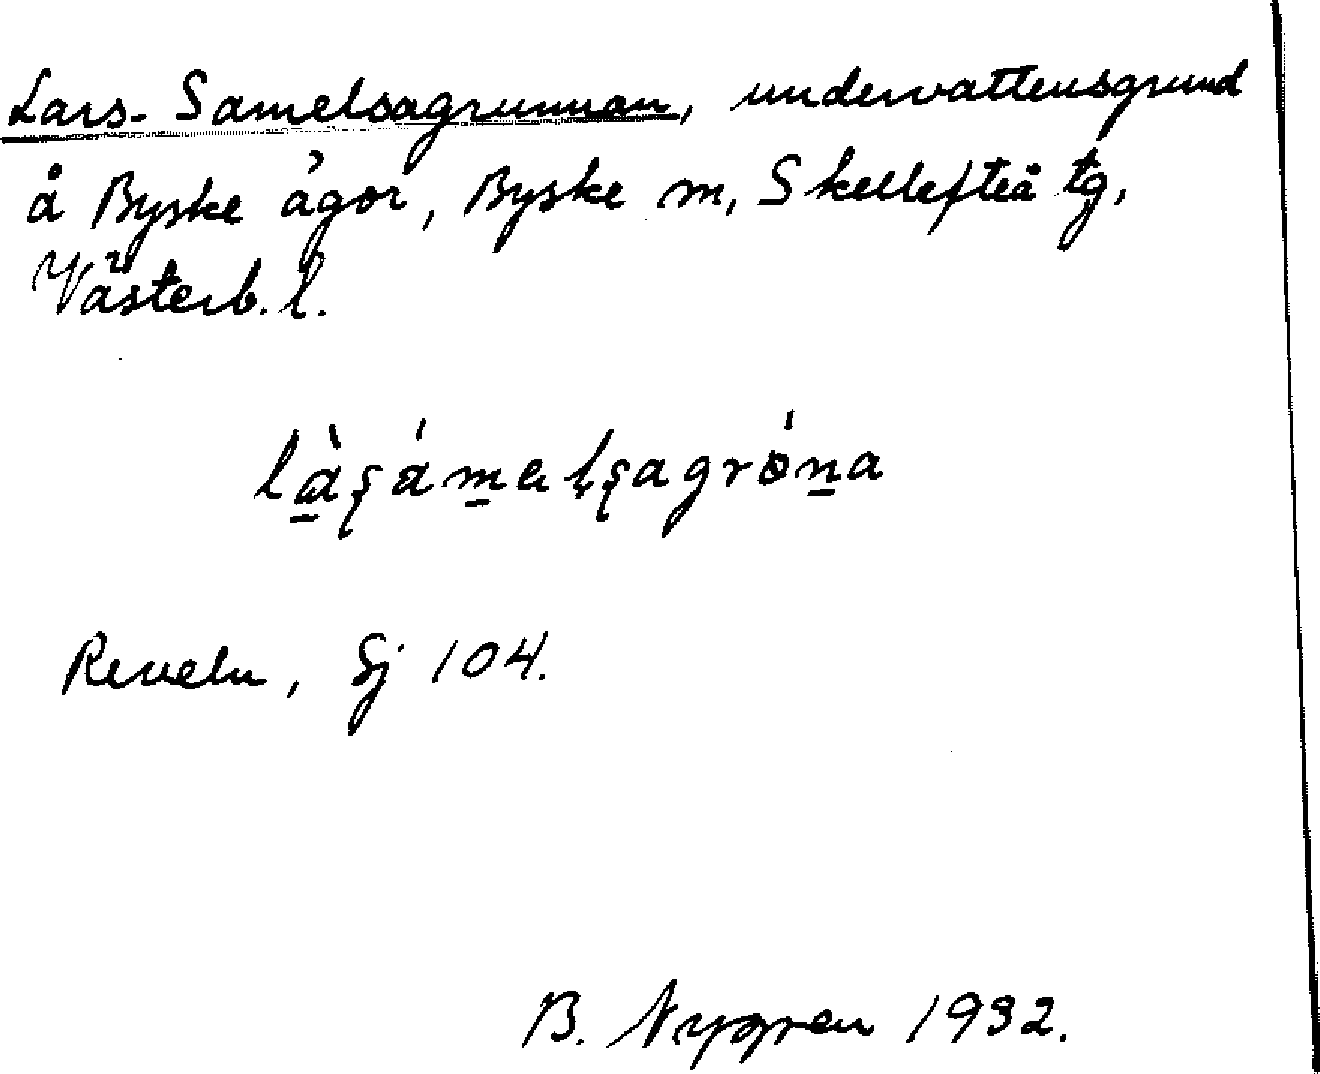 Lars-Samelsagrunnan, undervattensgrund
å Byske ägor, Byske sn, Skellefteå tg,
Västerb. l.
làṣámelṣagróna
Reveln, Sj 104.
B. Nygren 1932.